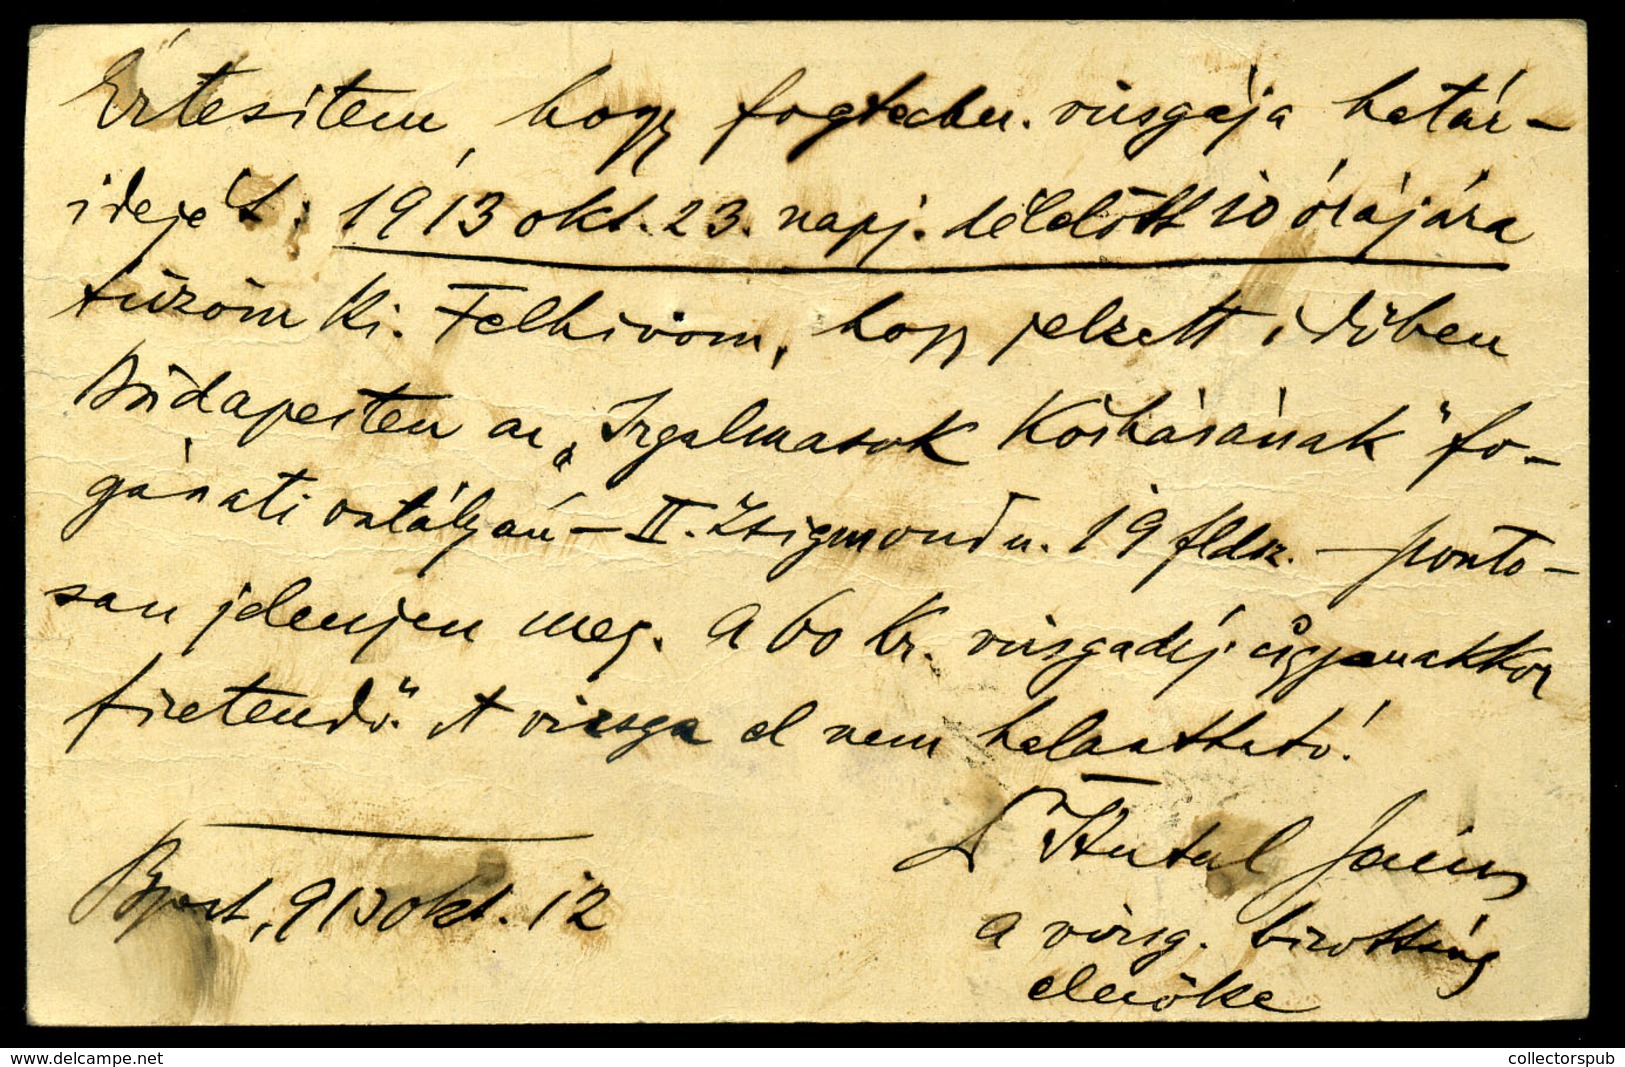 Értesitem, hogy fogtechn. vizsgája határ-
idejét: 1913 okt. 23. napj. délelőtt 10 órájára
tűzöm ki. Felhivom, hogy jelzett időben
Budapesten az „Irgalmasok Kórházának" fo-
gászati osztályán – II. Zsigmond u. 19 fldsz. – ponto-
san jelenjen meg. A 60 Kr. vizsgadíj ugyanakkor
fizetendő. A vizsga el nem halasztható!
Bpest, 913 okt. 12
Dr János
a vizsg. bizottság
elnöke
collectorspub